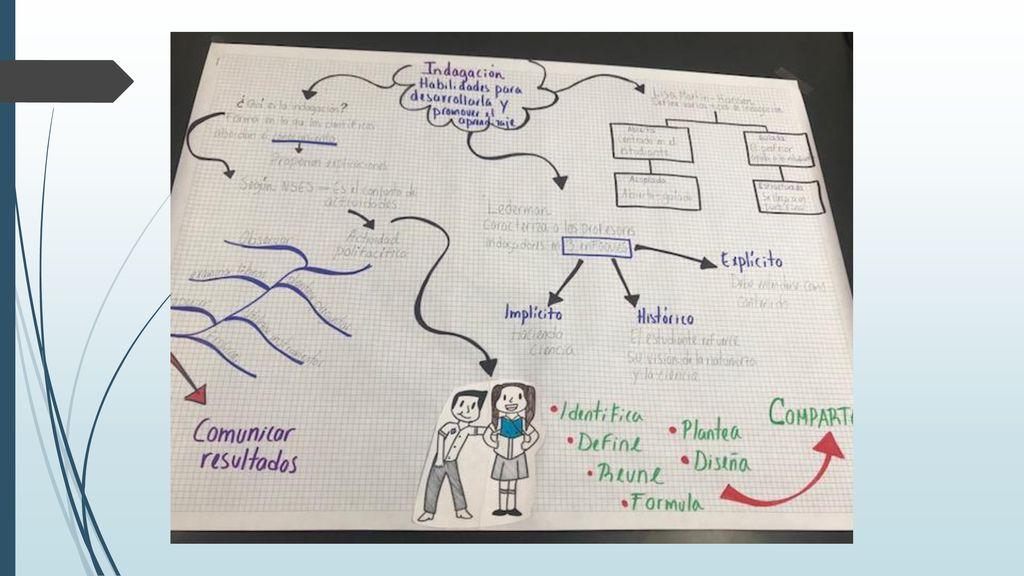 Indagación
Habilidades para
desarrollarla y
promover el
aprendizaje
¿Qué es la indagación?
Forma en la que los científicos
abordan el
Proponen explicaciones
Según NSES — Es el conjunto de
actividades
Actividad
polifacética
Observar
examinar libros
planteamiento
Comunicar
resultados
Lisa Martin-Hansen
Define varios tipos de indagación
Abierta
Centrado en el
estudiante
Acoplada
Abierta-guiada
Guiada
El profesor
ayuda a
Estructurada
Se dirige a un
punto final
Lederman
Caracteriza a los profesores
indagadores en 3 enfoques
Explícito
Debe como
contenido
Implícito
Haciendo
ciencia
Histórico
El estudiante refuerce
su visión de la naturaleza
y la ciencia
• Identifica
• Define
• Reune
• Formula
• Plantea
• Diseña
COMPARTE